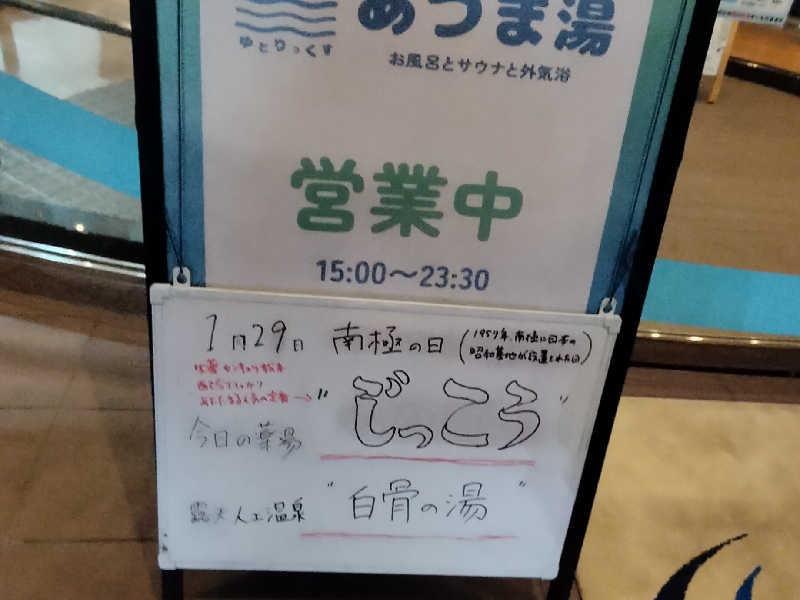 あづま湯
ゆとりっくす
お風呂とサウナと外気浴
営業中
15:00〜23:30
1月29日 南極の日 (1957年、南極に日本の
昭和基地が設置された日)
"じっこう"
今日の薬湯
露天人工温泉 "白骨の湯"